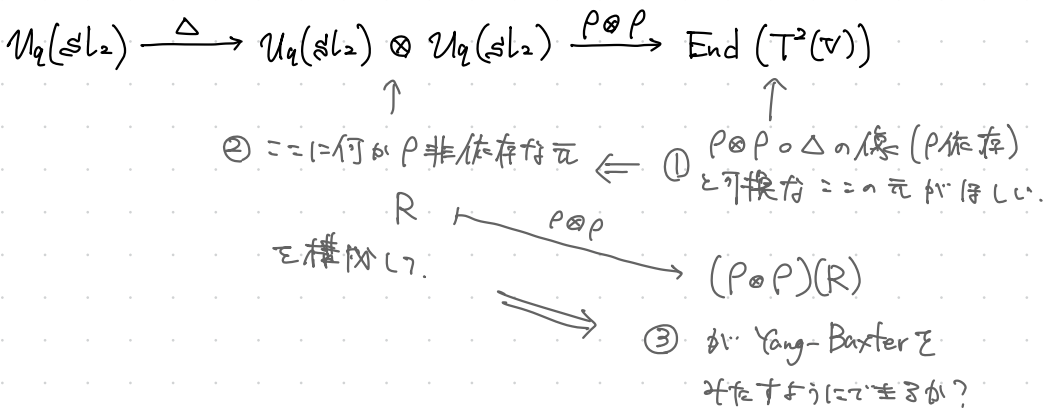 U_q(sl₂) —Δ→ U_q(sl₂) ⊗ U_q(sl₂) —ρ⊗ρ→ End (T²(V))
② ここに何か ρ非依存な元 ⇐ ① ρ⊗ρ∘Δ の像 (ρ依存)
と可換な ここの元 がほしい.
R ρ⊗ρ
を構成して.
(ρ⊗ρ)(R)
③ が Yang-Baxterを
みたすようにできるか?